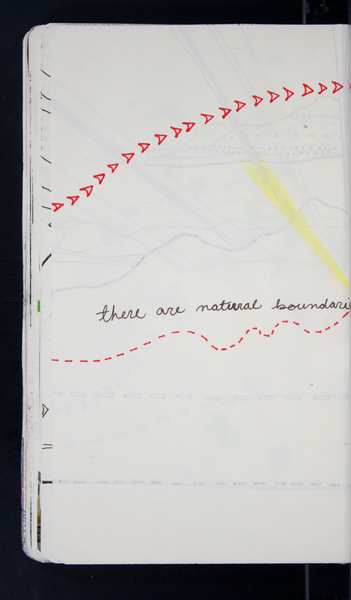 there are natural boundari